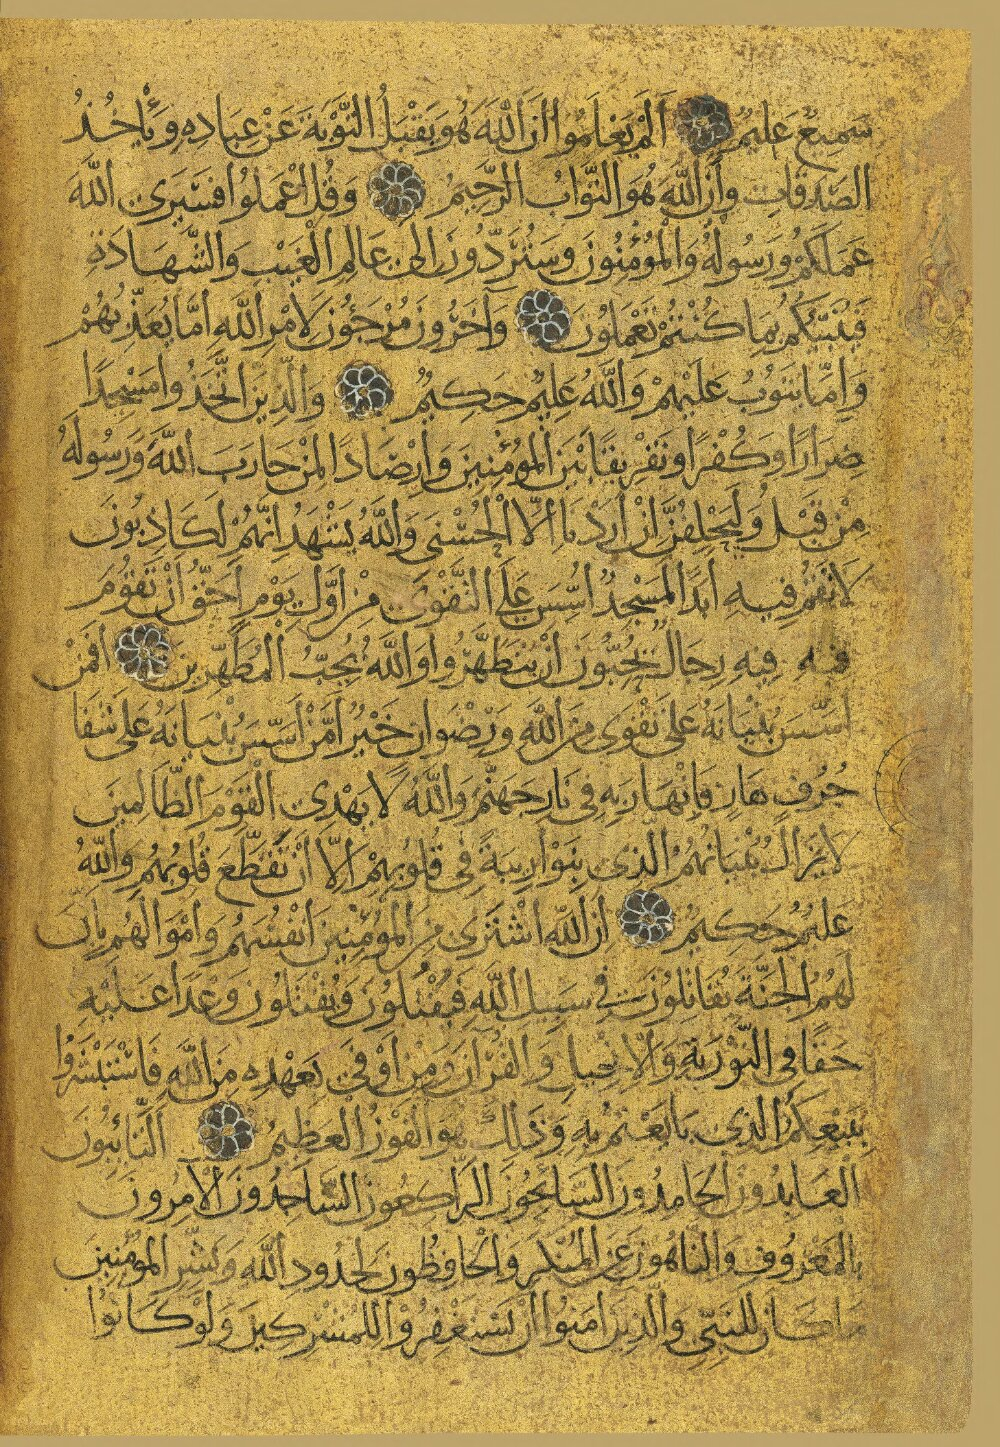 سَمِيعٌ عَلِيمٌ اَلَمْ يَعْلَمُوا اَنَّ اللَّهَ هُوَ يَقْبَلُ التَّوْبَةَ عَنْ عِبَادِهِ وَيَأْخُذُ
الصَّدَقَاتِ وَاَنَّ اللَّهَ هُوَ التَّوَّابُ الرَّحِيمُ وَقُلِ اعْمَلُوا فَسَيَرَى اللَّهُ
عَمَلَكُمْ وَرَسُولُهُ وَالْمُؤْمِنُونَ وَسَتُرَدُّونَ اِلَى عَالِمِ الْغَيْبِ وَالشَّهَادَةِ
فَيُنَبِّئُكُمْ بِمَا كُنْتُمْ تَعْمَلُونَ وَاَخَرُونَ مُرْجَوْنَ لِاَمْرِ اللَّهِ اِمَّا يُعَذِّبُهُمْ
وَاِمَّا يَتُوبُ عَلَيْهِمْ وَاللَّهُ عَلِيمٌ حَكِيمٌ وَالَّذِينَ اتَّخَذُوا مَسْجِدًا
ضِرَارًا وَكُفْرًا وَتَفْرِيقًا بَيْنَ الْمُؤْمِنِينَ وَاِرْصَادًا لِمَنْ حَارَبَ اللَّهَ وَرَسُولَهُ
مِنْ قَبْلُ وَلَيَحْلِفُنَّ اِنْ اَرَدْنَا اِلَّا الْحُسْنَى وَاللَّهُ يَشْهَدُ اِنَّهُمْ لَكَاذِبُونَ
لَا تَقُمْ فِيهِ اَبَدًا لَمَسْجِدٌ اُسِّسَ عَلَى التَّقْوَى مِنْ اَوَّلِ يَوْمٍ اَحَقُّ اَنْ تَقُومَ
فِيهِ فِيهِ رِجَالٌ يُحِبُّونَ اَنْ يَتَطَهَّرُوا وَاللَّهُ يُحِبُّ الْمُطَّهِّرِينَ اَفَمَنْ
اَسَّسَ بُنْيَانَهُ عَلَى تَقْوَى مِنَ اللَّهِ وَرِضْوَانٍ خَيْرٌ اَمْ مَنْ اَسَّسَ بُنْيَانَهُ عَلَى شَفَا
جُرُفٍ هَارٍ فَانْهَارَ بِهِ فِي نَارِ جَهَنَّمَ وَاللَّهُ لَا يَهْدِي الْقَوْمَ الظَّالِمِينَ
لَا يَزَالُ بُنْيَانُهُمُ الَّذِي بَنَوْا رِيبَةً فِي قُلُوبِهِمْ اِلَّا اَنْ تَقَطَّعَ قُلُوبُهُمْ وَاللَّهُ
عَلِيمٌ حَكِيمٌ اِنَّ اللَّهَ اشْتَرَى مِنَ الْمُؤْمِنِينَ اَنْفُسَهُمْ وَاَمْوَالَهُمْ بِاَنَّ
لَهُمُ الْجَنَّةَ يُقَاتِلُونَ فِي سَبِيلِ اللَّهِ فَيَقْتُلُونَ وَيُقْتَلُونَ وَعْدًا عَلَيْهِ
حَقًّا فِي التَّوْرَيةِ وَالْاِنْجِيلِ وَالْقُرْاَنِ وَمَنْ اَوْفَى بِعَهْدِهِ مِنَ اللَّهِ فَاسْتَبْشِرُوا
بِبَيْعِكُمُ الَّذِي بَايَعْتُمْ بِهِ وَذَلِكَ هُوَ الْفَوْزُ الْعَظِيمُ اَلتَّائِبُونَ
الْعَابِدُونَ الْحَامِدُونَ السَّائِحُونَ الرَّاكِعُونَ السَّاجِدُونَ الْاَمِرُونَ
بِالْمَعْرُوفِ وَالنَّاهُونَ عَنِ الْمُنْكَرِ وَالْحَافِظُونَ لِحُدُودِ اللَّهِ وَبَشِّرِ الْمُؤْمِنِينَ
مَا كَانَ لِلنَّبِيِّ وَالَّذِينَ اَمَنُوا اَنْ يَسْتَغْفِرُوا لِلْمُشْرِكِينَ وَلَوْ كَانُوا